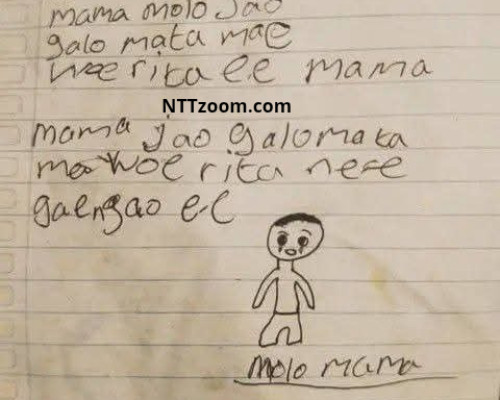 mama molo Jao
galo mata mae
woe rita e.e mama
NTTzoom.com
mama jao galo mata
ma woe rita nese
gaengao e-e
molo mama